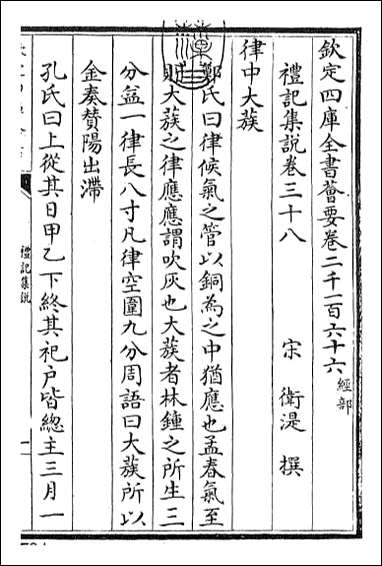 欽定四庫全書薈要卷二千一百六十六 經部
禮記集說卷三十八 宋 衛湜 撰
律中大蔟
鄭氏曰律候氣之管以銅為之中猶應也孟春氣至
則大蔟之律應應謂吹灰也大蔟者林鍾之所生三
分益一律長八寸凡律空圍九分周語曰大蔟所以
金奏贊陽出滯
孔氏曰上從其日甲乙下終其祀戶皆總主三月一
禮記集說